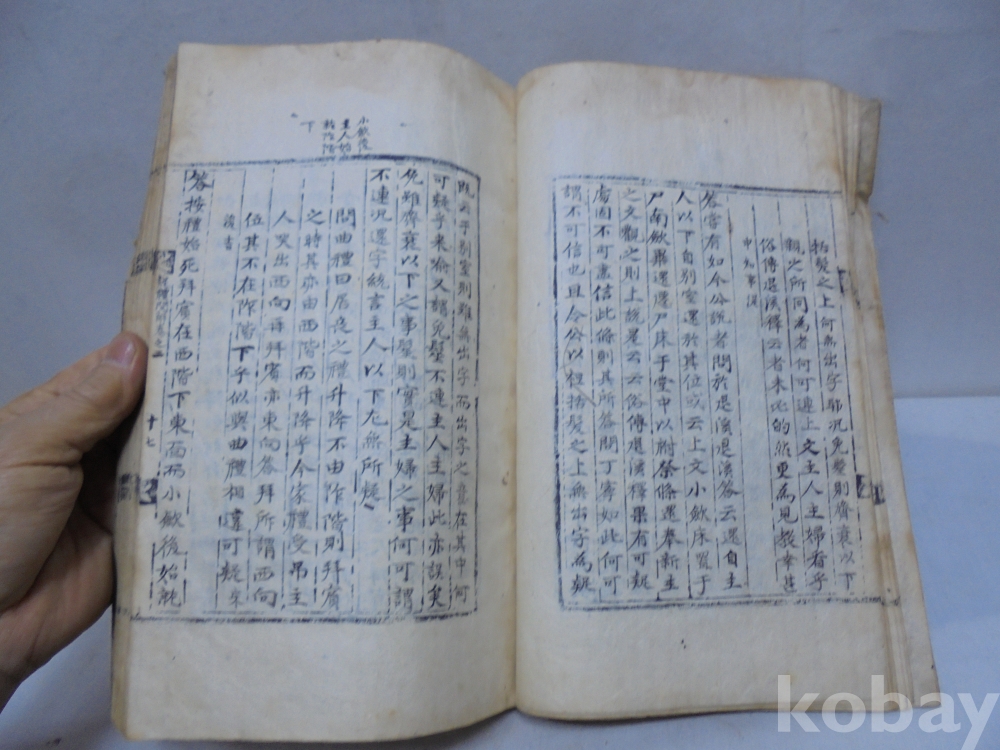 括髮之上何無出字耶況免髮則齊衰以下
親之所同為者何可連上文主人主婦看乎
俗傳退溪釋云者未必的然更為見敎幸甚
申知事混
答嘗有如令公說者問於退溪退溪答云還自主
人以下自別室還於其位或云上文小斂床置于
尸南斂畢還遷尸床于堂中以祔祭條還奉新主
之文觀之則上說是云云俗傳退溪釋果有可疑
處固不可盡信此條則其所答問丁寧如此何可
謂不可信也且令公以經括髮之上無出字為疑
既云乎別室則雖無出字而出字之意在其中何
可疑乎來喩又謂免髽不連主人主婦此亦誤矣
免雖齊衰以下之事髽則實是主婦之事何可謂
不連況還字統言主人以下尤無所疑
問曲禮曰居喪之禮升降不由阼階則拜賓
之時其亦由西階而升降乎今家禮受吊主
人哭出西向再拜賓亦東向答拜所謂西向
位其不在阼階下乎似與曲禮相違可疑
答按禮始死拜賓在西階下東面而小斂後始就
小斂後
主人始
就阼階
下
十七
kobay